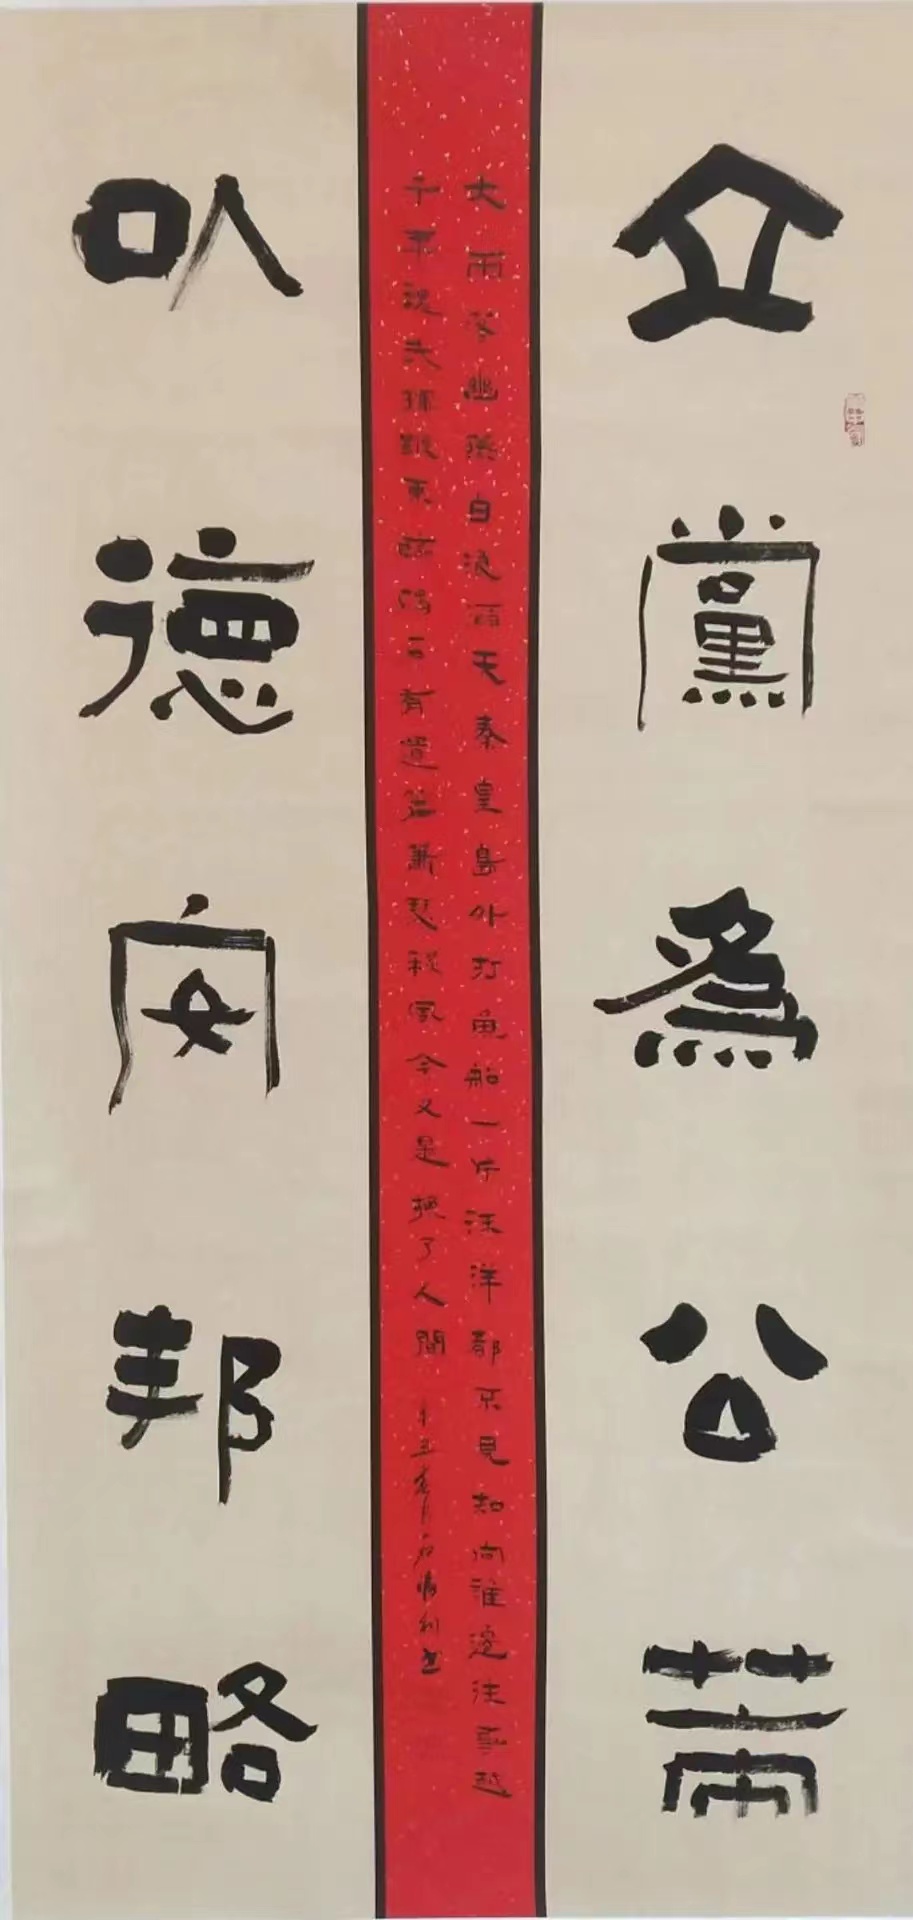 立黨為公
大雨落幽燕白浪滔天秦皇島外打魚船一片汪洋都不見知向誰邊往事越
千年魏武揮鞭東臨碣石有遺篇蕭瑟秋風今又是換了人間
㕥德安邦略